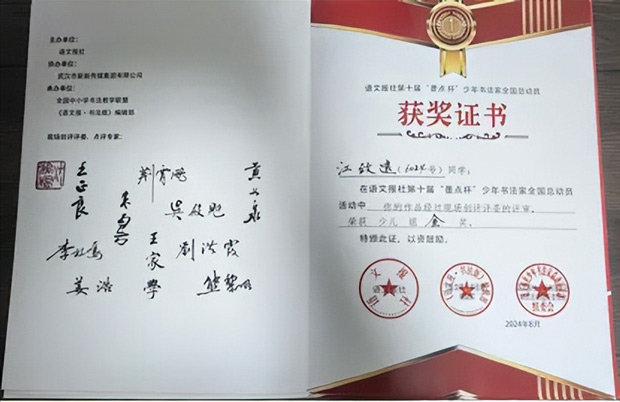 主办单位：
语文报社
协办单位：
武汉市新新传媒集团有限公司
承办单位：
全国中小学书法教学联盟
《语文报·书法版》编辑部
现场创评评委、点评专家：
王正良
荆霄鹏
吴俊
王家學
劉洪霞
姜浩
1
语文报社第十届“墨点杯”少年书法家全国总动员
获奖证书
江致遠（6024号）同学：
在语文报社第十届“墨点杯”少年书法家全国总动员
活动中，你的作品经过现场创评评委的评审，
荣获 少儿 组 金 奖。
特颁此证，以资鼓励。
语文报社
《语文报·书法版》编辑部
组委会
2024年8月